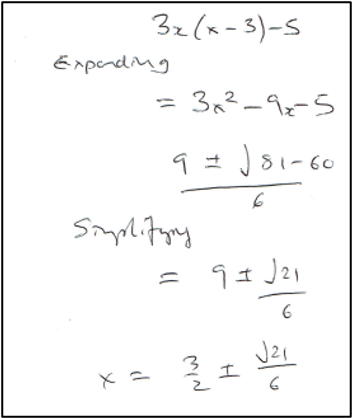 3x(x-3)-5
Expanding
= 3x²-9x-5
9 ± √81-60
6
Simplifying
= 9 ± √21
6
x = 3/2 ± √21/6